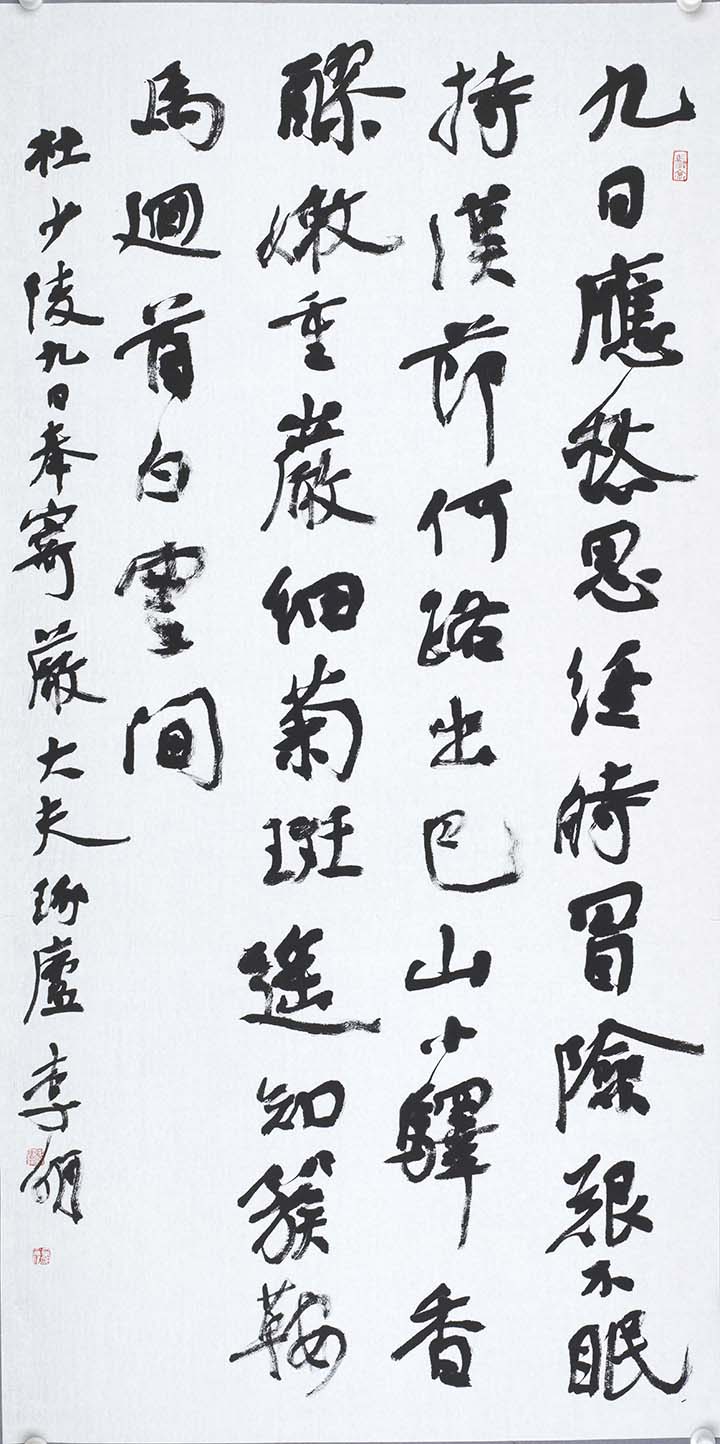 九日應愁思經時冒險艱不眠
持漢節何路出巴山小驛香
醪嫩重巖細菊斑遙知簇鞍
馬迴首白雲間
杜少陵九日奉寄嚴大夫廬李